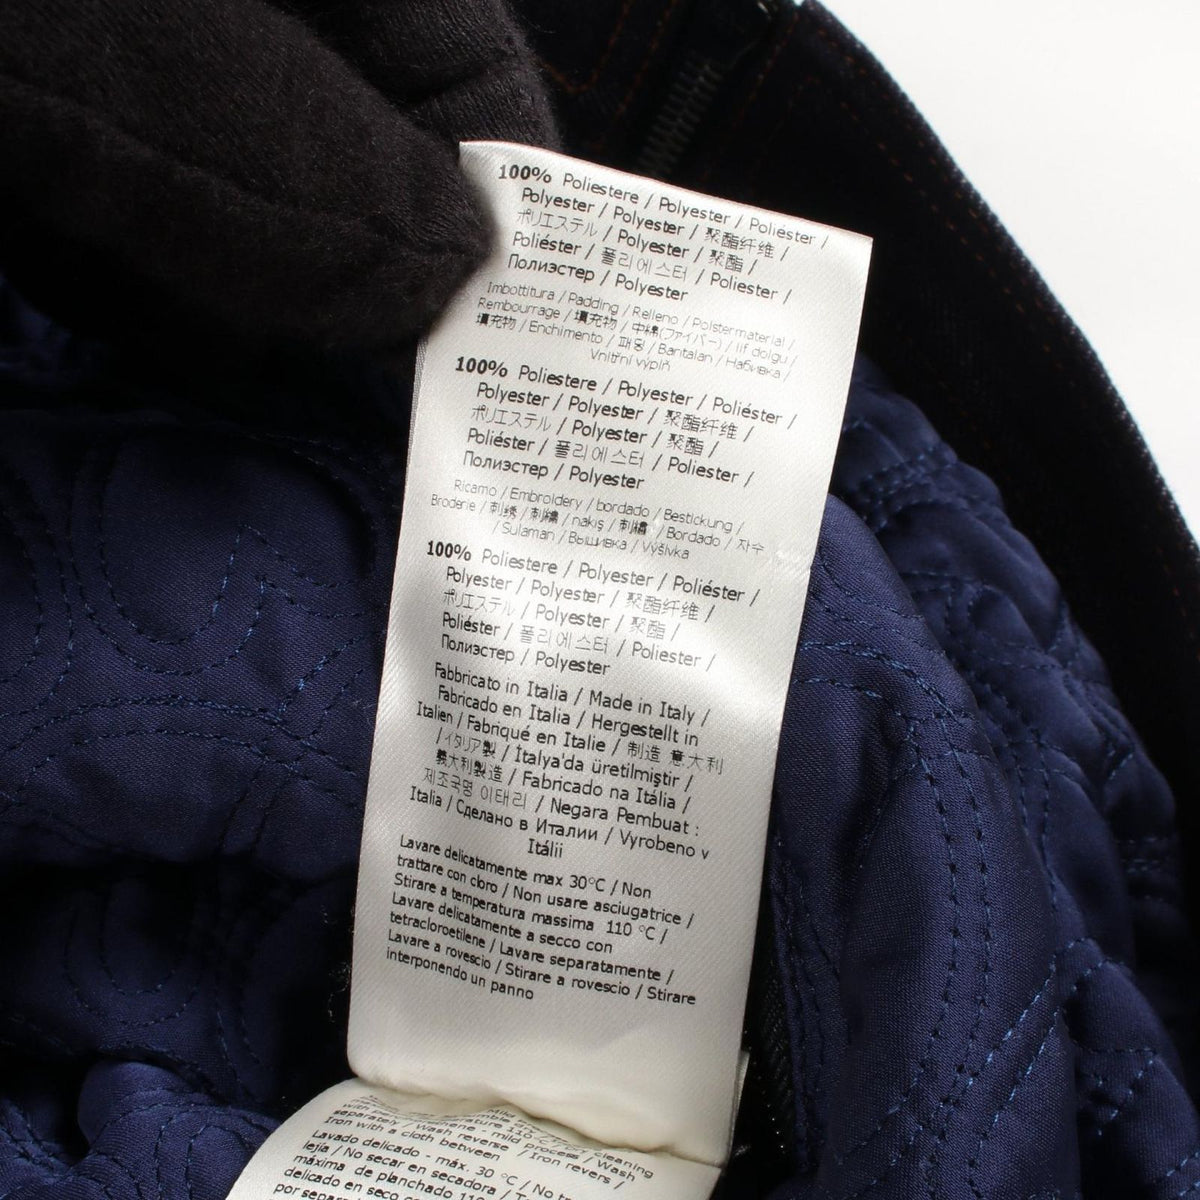 100% Poliestere / Polyester / Poliéster /
Polyester / Polyester / 聚酯纤维 /
ポリエステル / Polyester / 聚酯 /
Poliéster / 폴리에스터 / Poliester /
Полиэстер / Polyester
Imbottitura / Padding / Relleno / Polstermaterial /
Rembourrage / 填充物 / 中綿(ファイバー) / lif dolgu /
填充物 / Enchimento / 패딩 / Bantalan / Набивка /
Vnitřní výplň
100% Poliestere / Polyester / Poliéster /
Polyester / Polyester / 聚酯纤维 /
ポリエステル / Polyester / 聚酯 /
Poliéster / 폴리에스터 / Poliester /
Полиэстер / Polyester
Ricamo / Embroidery / bordado / Bestickung /
Broderie / 刺绣 / 刺繍 / nakış / 刺繡 / Bordado / 자수
/ Sulaman / Вышивка / Výšivka
100% Poliestere / Polyester / Poliéster /
Polyester / Polyester / 聚酯纤维 /
ポリエステル / Polyester / 聚酯 /
Poliéster / 폴리에스터 / Poliester /
Полиэстер / Polyester
Fabbricato in Italia / Made in Italy /
Fabricado en Italia / Hergestellt in
Italien / Fabriqué en Italie / 制造 意大利
/ イタリア製 / İtalya'da üretilmiştir /
義大利製造 / Fabricado na Itália /
제조국명 이태리 / Negara Pembuat :
Italia / Сделано в Италии / Vyrobeno v
Itálii
Lavare delicatamente max 30°C / Non
trattare con cloro / Non usare asciugatrice /
Stirare a temperatura massima 110 °C /
Lavare delicatamente a secco con
tetracloroetilene / Lavare separatamente /
Lavare a rovescio / Stirare a rovescio / Stirare
interponendo un panno
separately / Wash reverse / Iron revers /
Iron with a cloth between
Lavado delicado - máx. 30 °C / No
lejía / No secar en secadora /
máxima de planchado 110
delicado en seco
por